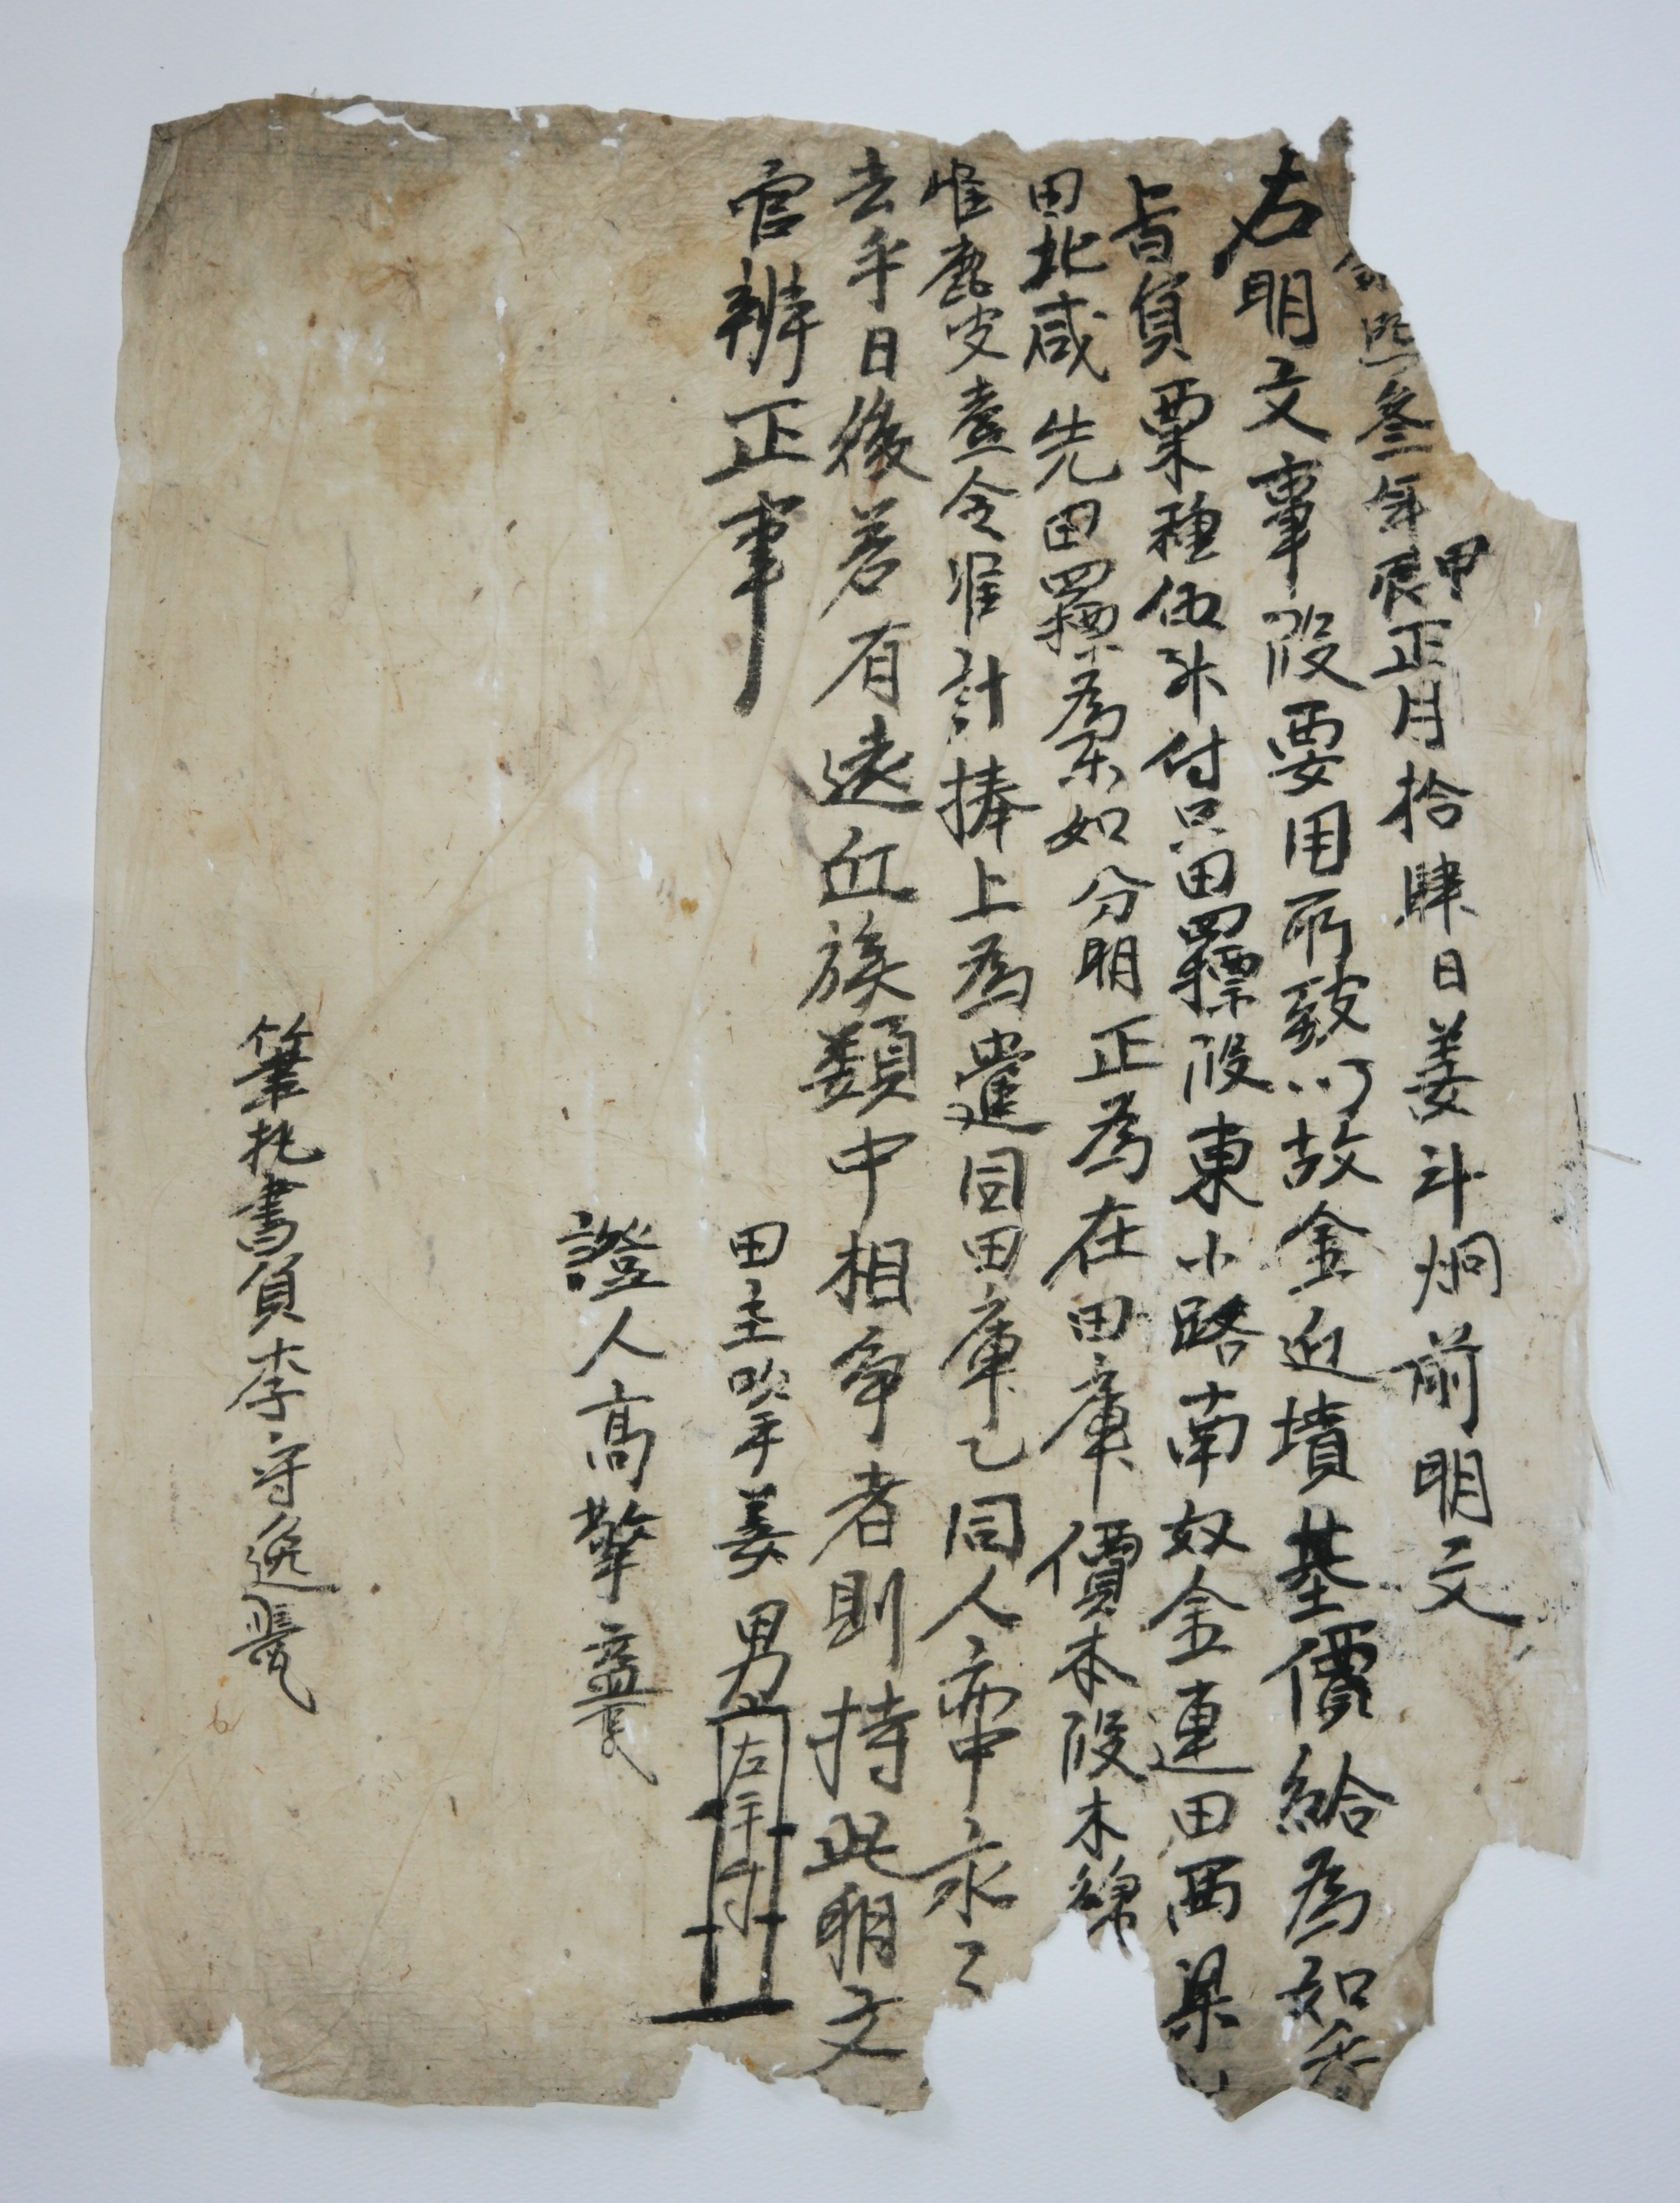 康熙叁年甲辰正月拾肆日姜斗炯前明文
右明文事段要用所致以故金近墳基價給爲如乎
旨員粟種伍升付只田羅摽段東小路南奴金連田西梁
田北咸先田羅摽爲票如分明正爲在田庫價本段木綿
准鹿皮壹令准計捧上爲遣同田庫乙同人亦中永〻
去乎日後若有遠近族類中相爭者則持此明文
官辨正事
田主吹手姜男 左手寸
證人高擎
筆執書員李守逸